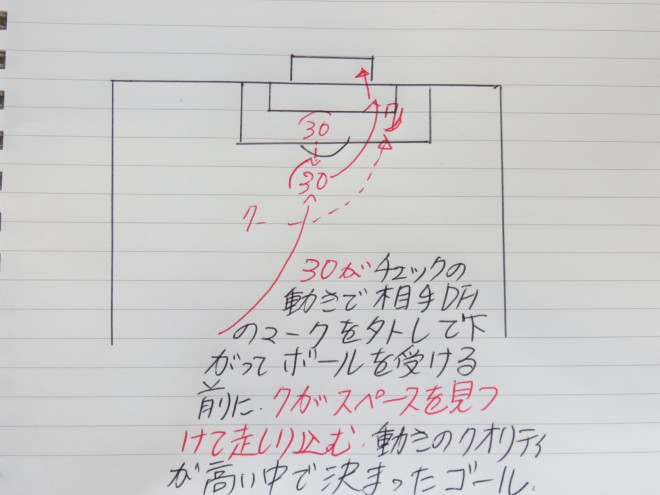 30
7
30
7
30がチェックの
動きで相手DFん
のマークを外トして下
がってボールを受ける
前に、7がスペースを見つ
けて走り込む。動きのクオリティ
が高い中で決まったゴール。